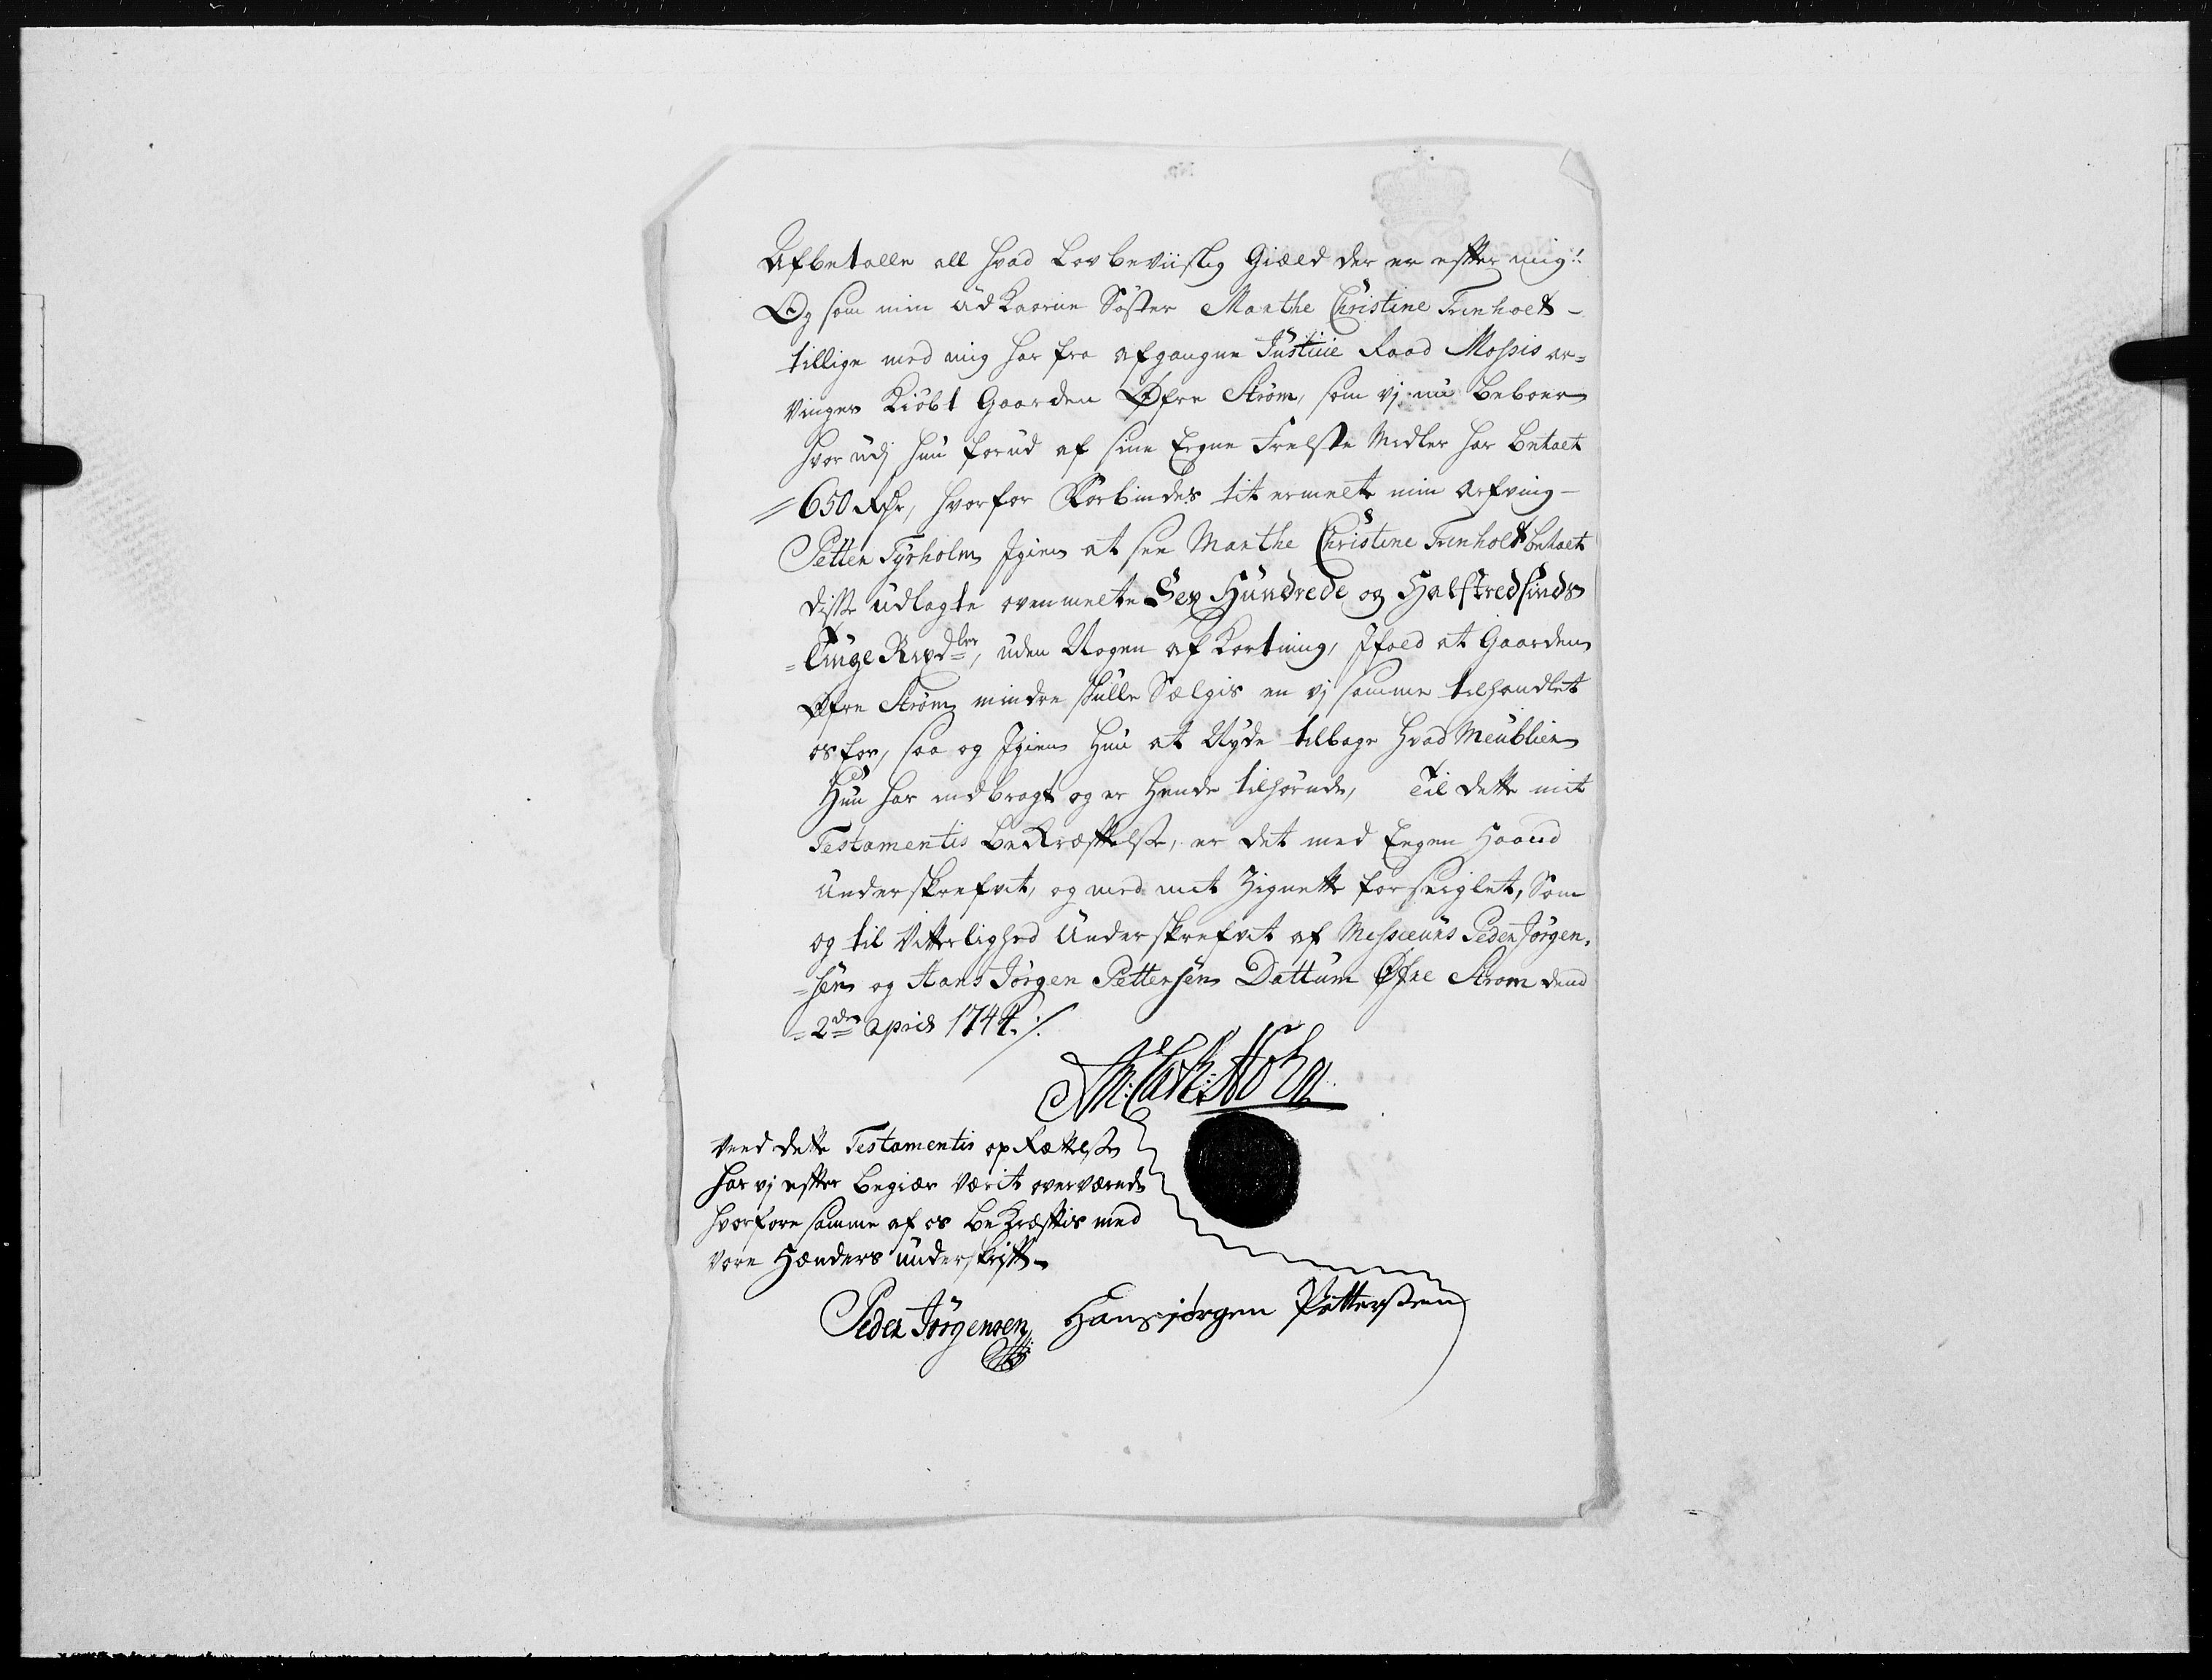 Afbetalle all hvad Lovbeviislig Giæld der er efter mig!
Og som min udkaarne Søster Marthe Christine Trinholt
tillige med mig har fra afgangne Justitie Raad Mossis ar=
vinger Kiöbt Gaarden Øfre Strøm, som vj nu beboer
hvor udj hun forud af sine Egne Frelste Midler har betalt
650 Rdr, hvorfor Forbindes tit ermelte min Arfving
Petter Tyrholm Igien at see Marthe Christine Trinholt betalt
disse udlagte ovenmelte Sex Hundrede og Halftredsinds
=tiuge Rixdler, uden Nogen afkortning, Ifald at Gaarden
Øfre Strøm mindre skulle Sælgis en vj samme tilhandlet
os for, saa og Igien hun at Nyde tilbage hvad Meublier
Hun har indbragt og er hende tilhörende, Til dette mit
Testamentis bekræftelse, er det med Eegen Haand
Underskrefvit, og med mit Zignette forseiglet, Som
og til Vitterlighed Underskrefvit af Messieurs Peder Jörgen=
=sen og Hans Jörgen Pettersen Dattum Øfre Strøm dend
2den April 1744 ./.
Vced dette Testamentis opRættelse
har vj efter begiær værit overværende
hvorfore samme af os bekræftis med
vore Hænders underskrift
Peder Jörgensen Hansjörgen Pettersen